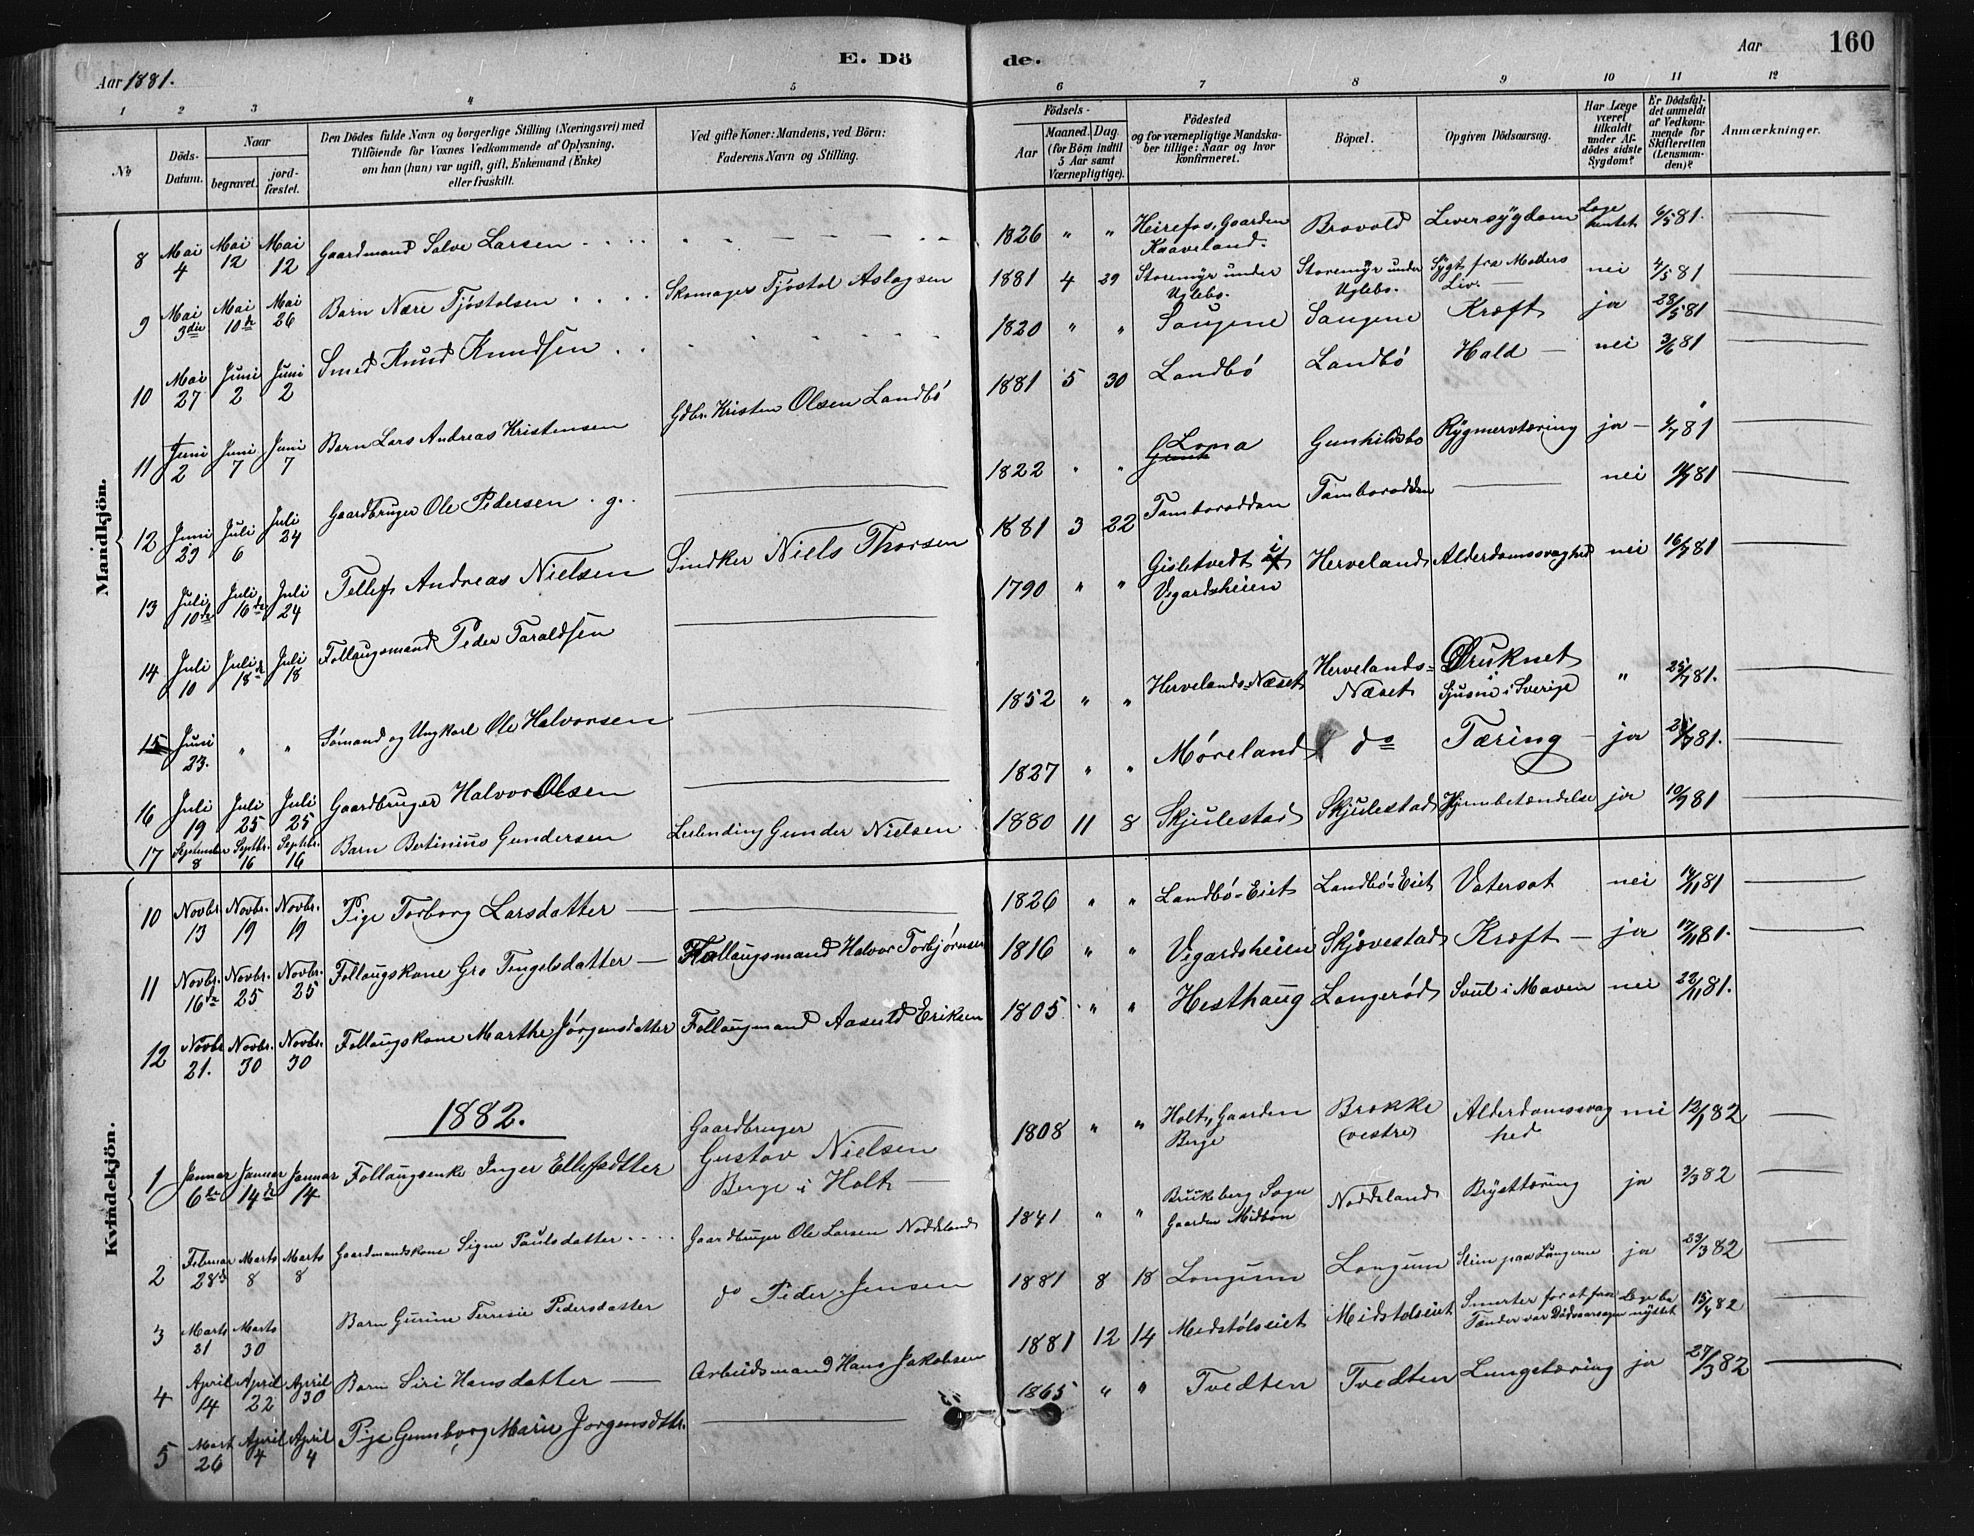 Aar 1881.
E. Dö
de.
Aar
160
1 2 3 4 5 6 7 8 9 10 11 12
No
Döds-Datum.
Naar
begravet.
jord-fæstet.
Den Dödes fulde Navn og borgerlige Stilling (Næringsvei) med
Tilföiende for Voxnes Vedkommende af Oplysning,
om han (hun) var ugift, gift, Enkemand (Enke)
eller fraskilt.
Ved gifte Koner: Mandens, ved Börn:
Faderens Navn og Stilling.
Födsels-
Aar
Maaned. Dag.
(for Börn indtil
5 Aar samt
Værnepligtige).
Födested
og for værnepligtige Mandska-
ber tillige: Naar og hvor
konfirmeret.
Böpæl.
Opgiven Dödsaarsag.
Har Læge
været
tilkaldt
under Af-
dödes sidste
Sygdom?
Er Dödsfal-
det anmeldt
af Vedkom-
mende for
Skifteretten
(Lensman-
den)?
Anmærkninger.
Mandkjön.
8 Mai 4 Mai 12 Mai 12 Gaardmand Salve Larsen 1826 " " Heirefos, Gaarden Kaaveland Brovold Leversygdom Læge hentet 6/5 81.
9 Mai 3die Mai 10de Mai 26 Barn Nære Tjøstolsen Skomager Tjøstol Aslagsen 1881 4 29 Storemyr under Uglebo. Storemyr under Uglebo. Sygt fra Moders Liv. nei 4/5 81
10 Mai 27 Juni 2 Juni 2 Smed Knud Knudsen 1820 " " Saugene Saugene Kræft ja 28/5 81
11 Juni 2 Juni 7 Juni 7 Barn Lars Andreas Kristensen Gdbr. Kristen Olsen Landbö 1881 5 30 Landbö Landbö Hald nei 3/6 81
12 Juni 29 Juli 6 Juli 24 Gaardbruger Ole Pedersen . g. 1822 " " Lona Gunhildsbo Rygmervtæring ja 1/7 81
13 Juli 10de Juli 16de Juli 24 Tellef Andreas Nielsen Sindker Niels Thorsen 1881 3 22 Tamborodden Tamborodden nei 11/7 81
14 Juli 10 Juli 18de Juli 18 Follaugsmand Peder Taraldsen 1790 " " Gisletvedt i Vegardsheien Herveland Alderdomssvaghed nei 16/7 81
15 Juni 23. " " Sømand og Ungkarl Ole Halvorsen 1852 " " Hervelands-Næset Hervelands-Næset Druknet Ljusne i Sverige " 25/7 81.
16 Juli 19 Juli 25 Juli 25 Gaardbruger Halvor Olsen 1827 " " Møreland do Tæring ja 81.
17 September 8 Septbr. 16 Septbr. 16 Barn Bertinius Gundersen Leilending Gunder Nielsen 1880 11 8 Skjulestad Skjulestad Hjernebetændelse ja 10/9 81
Kvindekjön.
10 Novbr. 13 Novbr. 19 Novbr. 19 Pige Torborg Larsdatter 1826 " " Landbö-Eiet Landbö-Eiet Vatersot nei 14/11 81
11 Novbr. 16de Novbr. 25 Novbr. 25 Follaugskone Gro Tengelsdatter Follaugsmand Halvor Torbjørnsen 1816 " " Vegardsheien Skjævestad Kræft ja 17/11 81.
12 Novbr. 21. Novbr. 30 Novbr. 30 Follaugskone Marthe Jörgensdatter Follaugmand Aasuld Eriksen 1805 " " Hesthaug Langerød Svul i Maven nei 22/11 81.
1882.
1 Januar 6te Januar 14de Januar 14 Follaugsenke Inger Ellefsdtter Gaardbruger Gustav Nielsen Berge i Holt 1808 " " Holt, Gaarden Berge Brække (vestre) Alderdomssvaghed nei 12/1 82
2 Februar 28de Marts 8 Marts 8 Gaardmandskone Signe Paulsdatter Gaardbruger Ole Larsen Noddeland 1841 " " Brukeberg Sogn Gaarden Midbøn Noddeland Brysttæring ja 2/3 82
3 Marts 21 Marts 30 Barn Gurine Terresie Pedersdatter do Peder Jensen 1881 8 18 Longum Longum Slim paa Lungerne ja 23/3 82
4 April 14 April 22 April 30 Barn Siri Hansdatter Arbeidsmand Hans Jakobsen 1881 12 14 Midstølseiet Midstølseiet Smerter for at faa Tænder var Dødsaarsagen Læge benyttet 15/4 82
5 Mart 26 April 4 April 4 Pige Gunnborg Marie Jörgensdttr. 1865 " " Tvedten Tvedten Lungetæring ja 27/3 82